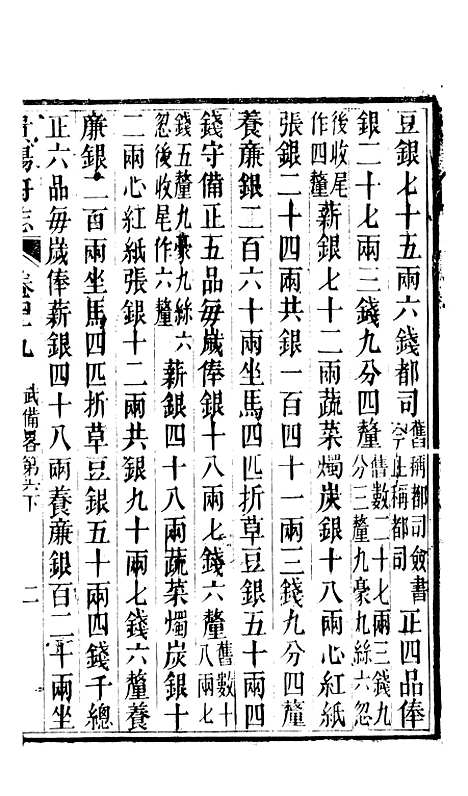 豆銀七十五兩六錢都司舊稱都司僉書今止稱都司正四品俸
銀二十七兩三錢九分四釐舊數二十七兩三錢九分三釐九豪九絲六忽
後收尾作四釐薪銀七十二兩蔬菜燭炭銀十八兩心紅紙
張銀二十四兩共銀一百四十一兩三錢九分四釐
養廉銀二百六十兩坐馬四匹折草豆銀五十兩四
錢守備正五品每歲俸銀十八兩七錢六釐舊數十八兩七
錢五釐九豪九絲六忽後收尾作六釐薪銀四十八兩蔬菜燭炭銀十
二兩心紅紙張銀十二兩共銀九十兩七錢六釐養
廉銀二百兩坐馬四匹折草豆銀五十兩四錢千總
正六品每歲俸薪銀四十八兩養廉銀百二十兩坐
貴陽府志 卷四十九 武備畧第六下 二